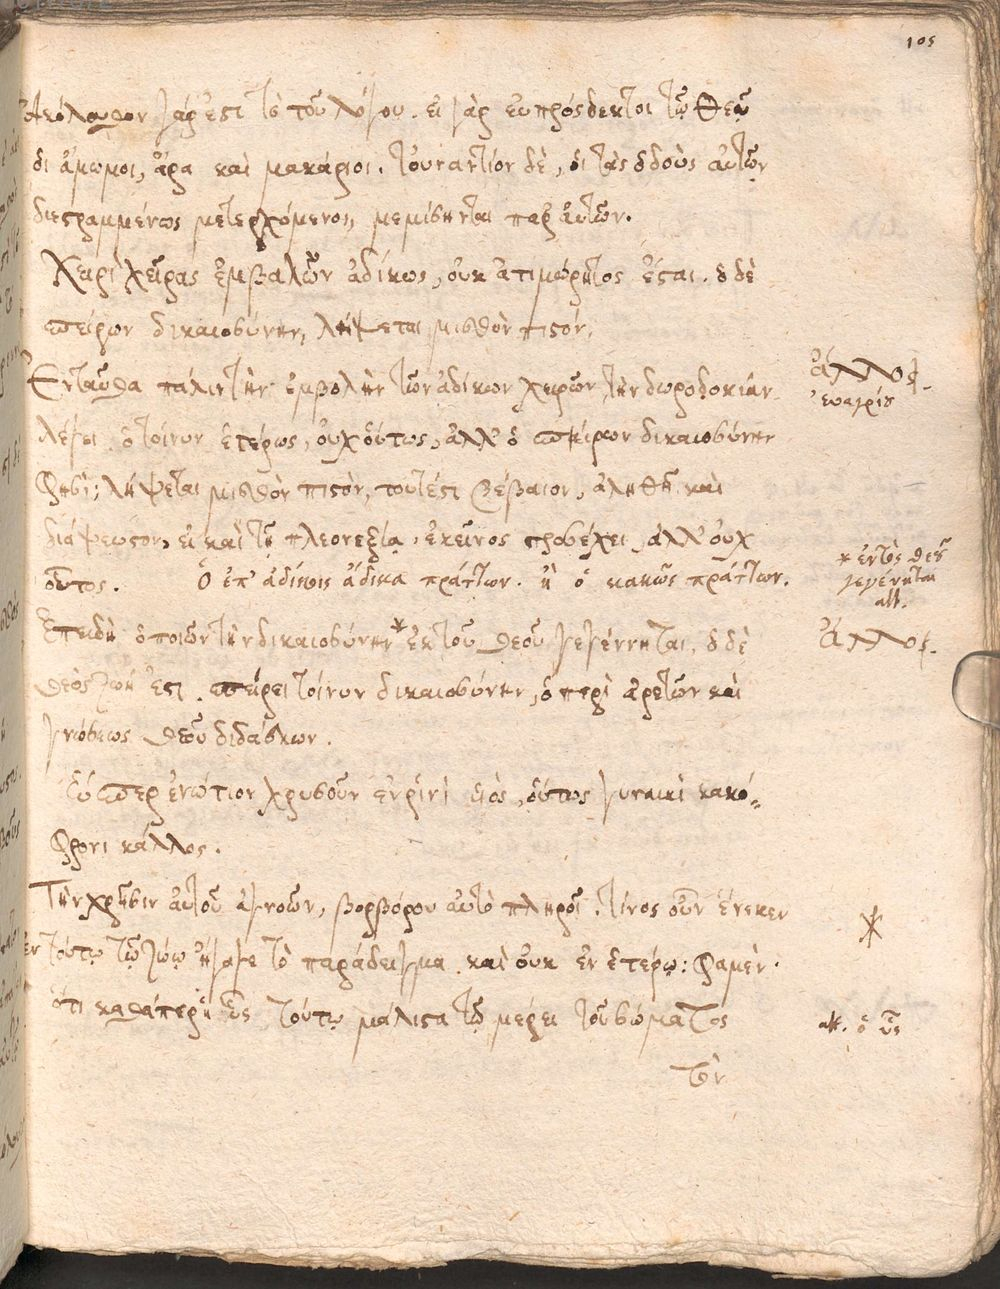 105
Ἀκόλουθον γάρ ἐστι τὸ τοῦ λόγου. εἰ γὰρ εὐπρόσδεκτοι τῷ θεῷ
ὁι ἄμωμοι, ἄρα καὶ μακάριοι. τοὐναντίον δὲ, ὁι τὰς ὁδοὺς αὐτῶν
διεστραμμένως μετερχόμενοι, μεμίσηνται παρ' αὐτῶν.
Χειρὶ χεῖρας ἐμβαλὼν ἀδίκως, οὐκ ἀτιμώρητος ἔσται. ὁ δὲ
σπείρων δικαιοσύνην, λήψεται μισθὸν πιστόν.
Ἐνταῦθα πάλιν τὴν ἐμβολὴν τῶν ἀδίκων χειρῶν, τὴν δωροδοκίαν
ἄλλος.
εὐαγρίου
λέγει. ὁ τοίνυν ἑτέρως, οὐχ οὕτως, ἀλλ' ὁ σπείρων δικαιοσύνην
φησί; λήψεται μισθὸν πιστὸν, τουτέστι βέβαιον, ἀληθῆ καὶ
διάψευστον, εἰ καὶ τῇ πλεονεξίᾳ ἐκεῖνος προσέχει, ἀλλ' οὐχ
οὗτος. Ὁ ἐπ' ἀδίκοις ἄδικα πράττων. ἢ ὁ κακῶς πράττων.
* ἐντὸς θεοῦ
γεγένηται
all.
Ἐπειδὴ ὁ ποιῶν τὴν δικαιοσύνην * ἐκ τοῦ θεοῦ γεγέννηται, ὁ δὲ
ἄλλος.
θεὸς ζωή ἐστι. σπείρει τοίνυν δικαιοσύνην, ὁ περὶ ἀρετῶν καὶ
γνώσεως θεοῦ διδάσκων.
Ὥσπερ ἐνώτιον χρυσοῦν ἐν ῥινὶ ὑὸς, οὕτως γυναικὶ κακό=
φρονι κάλλος.
Τὴν χρῆσιν αὐτοῦ ἀγνοῶν, βορβόρου αὐτὸ πληροῖ. τίνος οὖν ἕνεκεν
ἐν τούτῳ τῷ ζώῳ ἤγαγε τὸ παράδειγμα καὶ οὐκ ἐν ἑτέρῳ; φαμὲν
ὅτι καθάπερ ἡ ὗς τούτῳ μάλιστα τῷ μέρει τοῦ σώματος
all. ὁ ὗς
τὸν